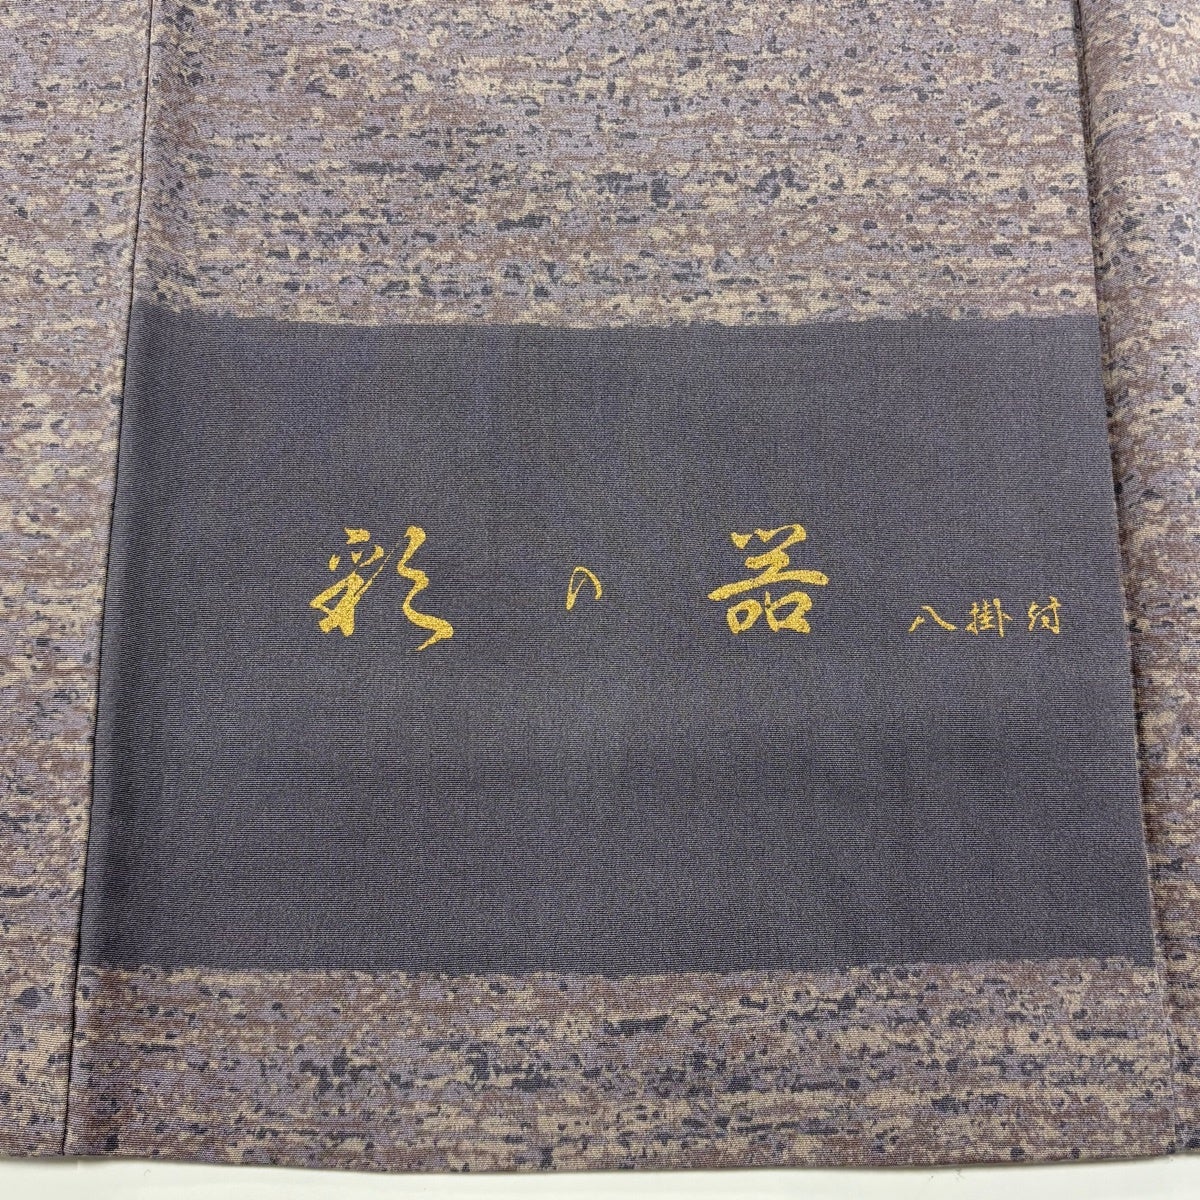 彩の器 八掛付